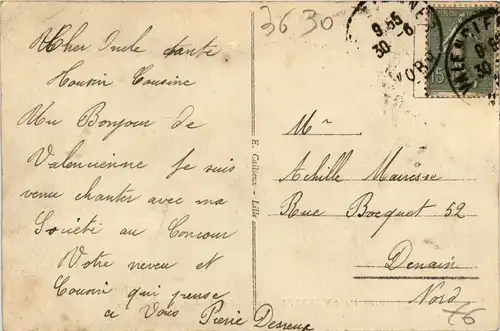 3630
Cher Oncle tante
Cousin Cousine
Un Bonjour de
Valencienne Je suis
venu chanter avec ma
Société au Concour
Votre neveu et
Cousin qui pense
a Vous Pierre
E. Cailteux - Lille
9 55
30 -6
NORD
15
VALENCIE
9
30
Mr
Achille Mairesse
Rue Bocquet 52
Denain
Nord
76